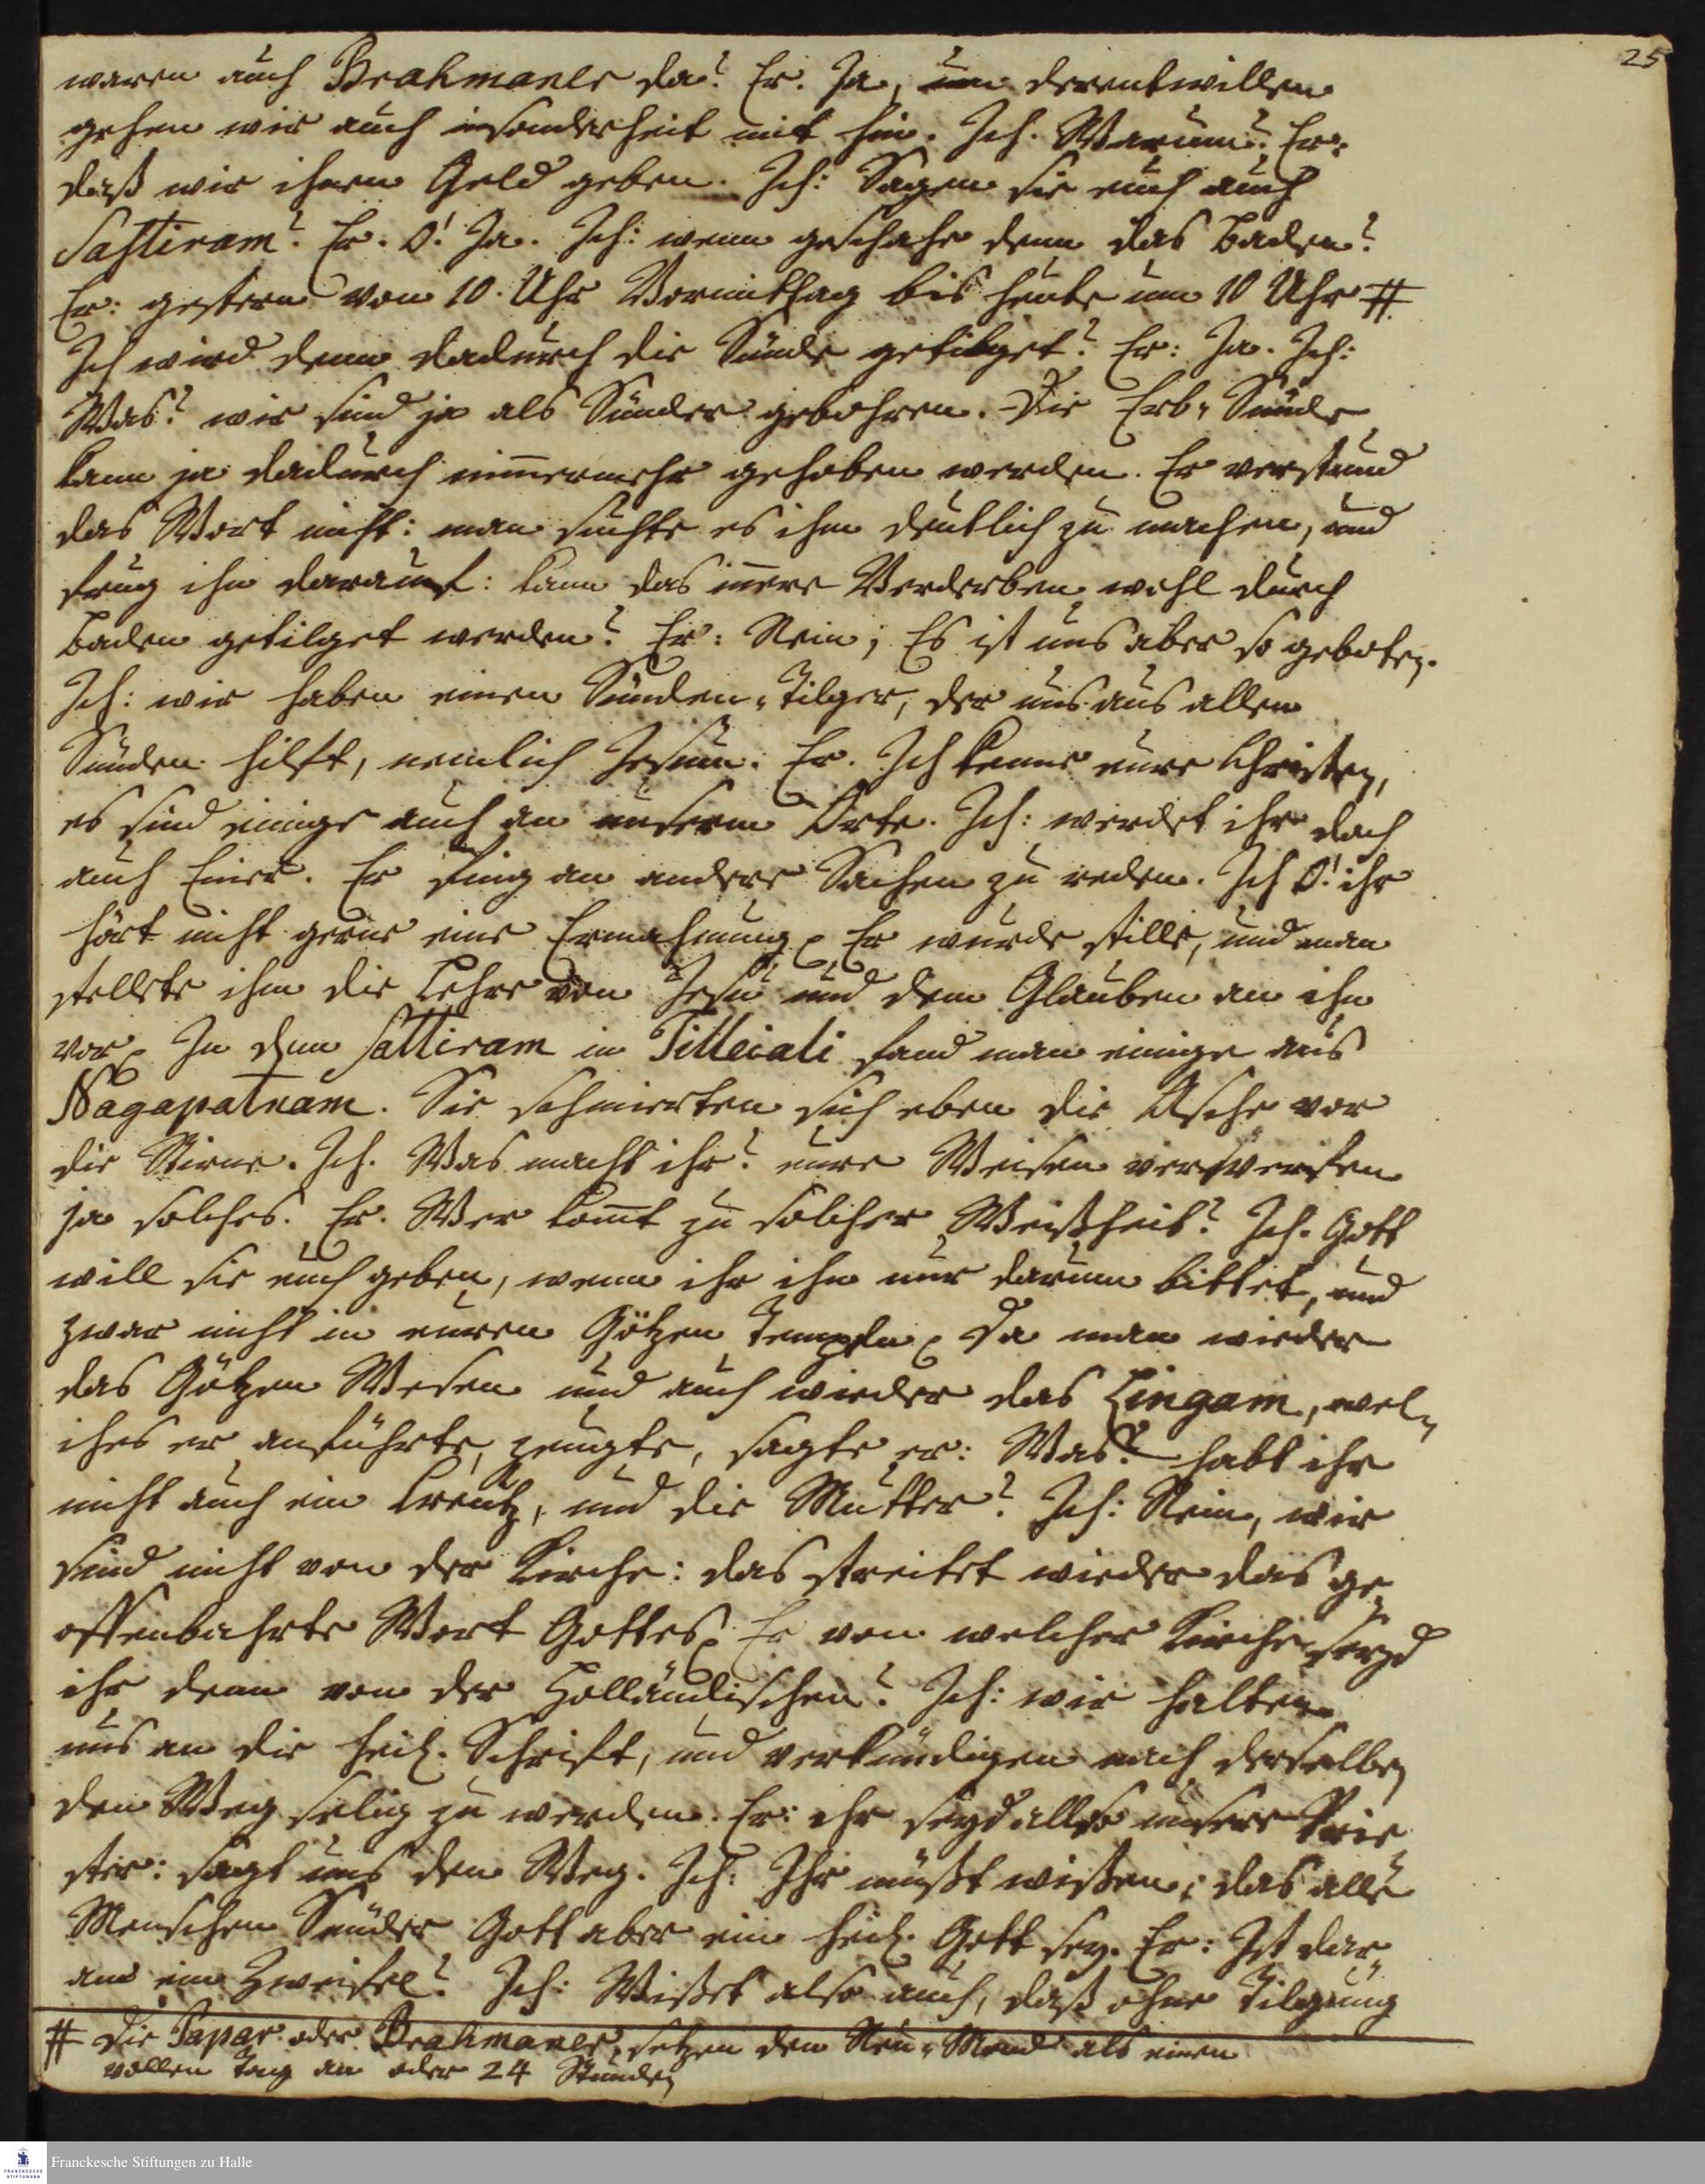 25
waren auch Brahmanes da? Er. Ja, um derentwillen
gehen wir auch insonderheit mit hin. Ich. Warum? Er:
daß wir ihnen Geld geben. Ich: Sagen sie euch auch
Sastiram? Er. O! Ja. Ich: wenn geschahe denn das Baden?
Er: gestern von 10. Uhr Vormittag bis heute um 10 Uhr #
Ich wird denn dadurch die Sünde getilget? Er: Ja. Ich:
Was? wir sind ja als Sünder gebohren. Die Erb-Sünde
kann ja dadurch nimmermehr gehoben werden. Er verstund
das Wort nicht: man suchte es ihm deutlich zu machen, und
frug ihn darauf: kann das innere Verderben wohl durch
Baden getilget werden? Er: Nein; Es ist uns aber so geboten.
Ich: wir haben einen Sünden-Tilger, der uns aus allen
Sünden hilft, nemlich Jesum. Er. Ich kenne eure Christen,
es sind einige auch an unserm Orte. Ich: werdet ihr doch
auch Einer. Er fing an andere Sachen zu reden. Ich O! ihr
hört nicht gerne eine Ermahnung. Er wurde stille, und man
stellete ihm die Lehre von Jesu und dem Glauben an ihn
vor. In dem Sattiram in Tilleiali fand man einige aus
Nagapatnam. Sie schmierten sich eben die Asche vor
die Stirne. Ich. Was macht ihr? eure Weisen verwerfen
ja solches. Er. Wer komt zu solcher Weißheit? Ich. Gott
will sie euch geben, wenn ihr ihn nur darum bittet, und
zwar nicht in euren Götzen Tempeln. Da man wieder
das Götzen Wesen und auch wieder das Lingam, wel-
ches er anführte, zeugte, sagte er: Was? habt ihr
nicht auch ein Creutz, und die Mutter? Ich: Nein, wir
sind nicht von der Kirche: das streitet wieder das ge-
offenbahrte Wort Gottes. Er von welcher Kirche seyd
ihr denn von der Holländischen? Ich: wir halten
uns an die heil. Schrift, und verkündigen nach derselben
den Weg selig zu werden. Er: ihr seyd also unsere Prie
ster: sagt uns den Weg. Ich: Ihr müßt wißen, das alle
Menschen Sünder Gott aber ein heil. Gott sey. Er: Ist dar-
an ein Zweifel? Ich: Wißet also auch, daß ohne Tilgung
# Die Papar oder Brahmanes, setzen den Neu-Mond als einen
vollen Tag an oder 24 Stunden
Franckesche Stiftungen zu Halle
FRANCKESCHE
STIFTUNGEN